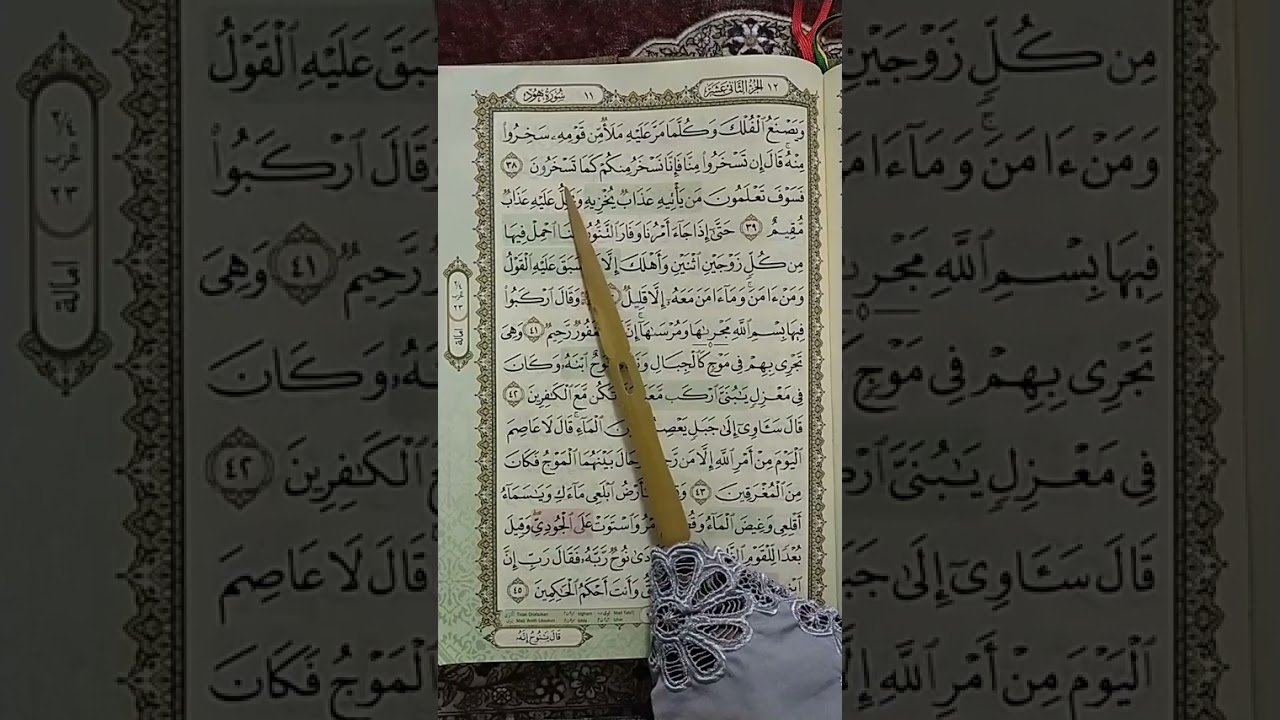 ١٢ الجزء الثاني عشر
١١ سورة هود
وَيَصْنَعُ ٱلْفُلْكَ وَكُلَّمَا مَرَّ عَلَيْهِ مَلَأٌ مِّن قَوْمِهِۦ سَخِرُوا۟
مِنْهُ ۚ قَالَ إِن تَسْخَرُوا۟ مِنَّا فَإِنَّا نَسْخَرُ مِنكُمْ كَمَا تَسْخَرُونَ ٣٨
فَسَوْفَ تَعْلَمُونَ مَن يَأْتِيهِ عَذَابٌ يُخْزِيهِ عَلَيْهِ عَذَابٌ
مُّقِيمٌ ٣٩ حَتَّىٰٓ إِذَا جَآءَ أَمْرُنَا وَفَارَ ٱلتَّنُّورُ ٱحْمِلْ فِيهَا
مِن كُلٍّ زَوْجَيْنِ ٱثْنَيْنِ وَأَهْلَكَ إِلَّا سَبَقَ عَلَيْهِ ٱلْقَوْلُ
وَمَنْ ءَامَنَ ۚ وَمَآ ءَامَنَ مَعَهُۥٓ إِلَّا قَلِيلٌ وَقَالَ ٱرْكَبُوا۟
فِيهَا بِسْمِ ٱللَّهِ مَجْر۪ىٰهَا وَمُرْسَىٰهَآ ۚ إِنَّ لَغَفُورٌ رَّحِيمٌ ٤١ وَهِىَ
تَجْرِى بِهِمْ فِى مَوْجٍ كَٱلْجِبَالِ نُوحٌ ٱبْنَهُۥ وَكَانَ
فِى مَعْزِلٍ يَـٰبُنَىَّ ٱرْكَب مَّعَنَا تَكُن مَّعَ ٱلْكَـٰفِرِينَ ٤٢
قَالَ سَـَٔاوِىٓ إِلَىٰ جَبَلٍ يَعْصِمُنِى مِنَ ٱلْمَآءِ ۚ قَالَ لَا عَاصِمَ
ٱلْيَوْمَ مِنْ أَمْرِ ٱللَّهِ إِلَّا مَن رَّحِمَ ۚ وَحَالَ بَيْنَهُمَا ٱلْمَوْجُ فَكَانَ
مِنَ ٱلْمُغْرَقِينَ ٤٣ يَـٰٓأَرْضُ ٱبْلَعِى مَآءَكِ وَيَـٰسَمَآءُ
أَقْلِعِى وَغِيضَ ٱلْمَآءُ وَٱسْتَوَتْ عَلَى ٱلْجُودِىِّ ۖ وَقِيلَ
بُعْدًا لِّلْقَوْمِ نُوحٌ رَّبَّهُۥ فَقَالَ رَبِّ إِنَّ
وَأَنتَ أَحْكَمُ ٱلْحَـٰكِمِينَ ٤٥
قَالَ يَـٰنُوحُ إِنَّهُۥ
امالة